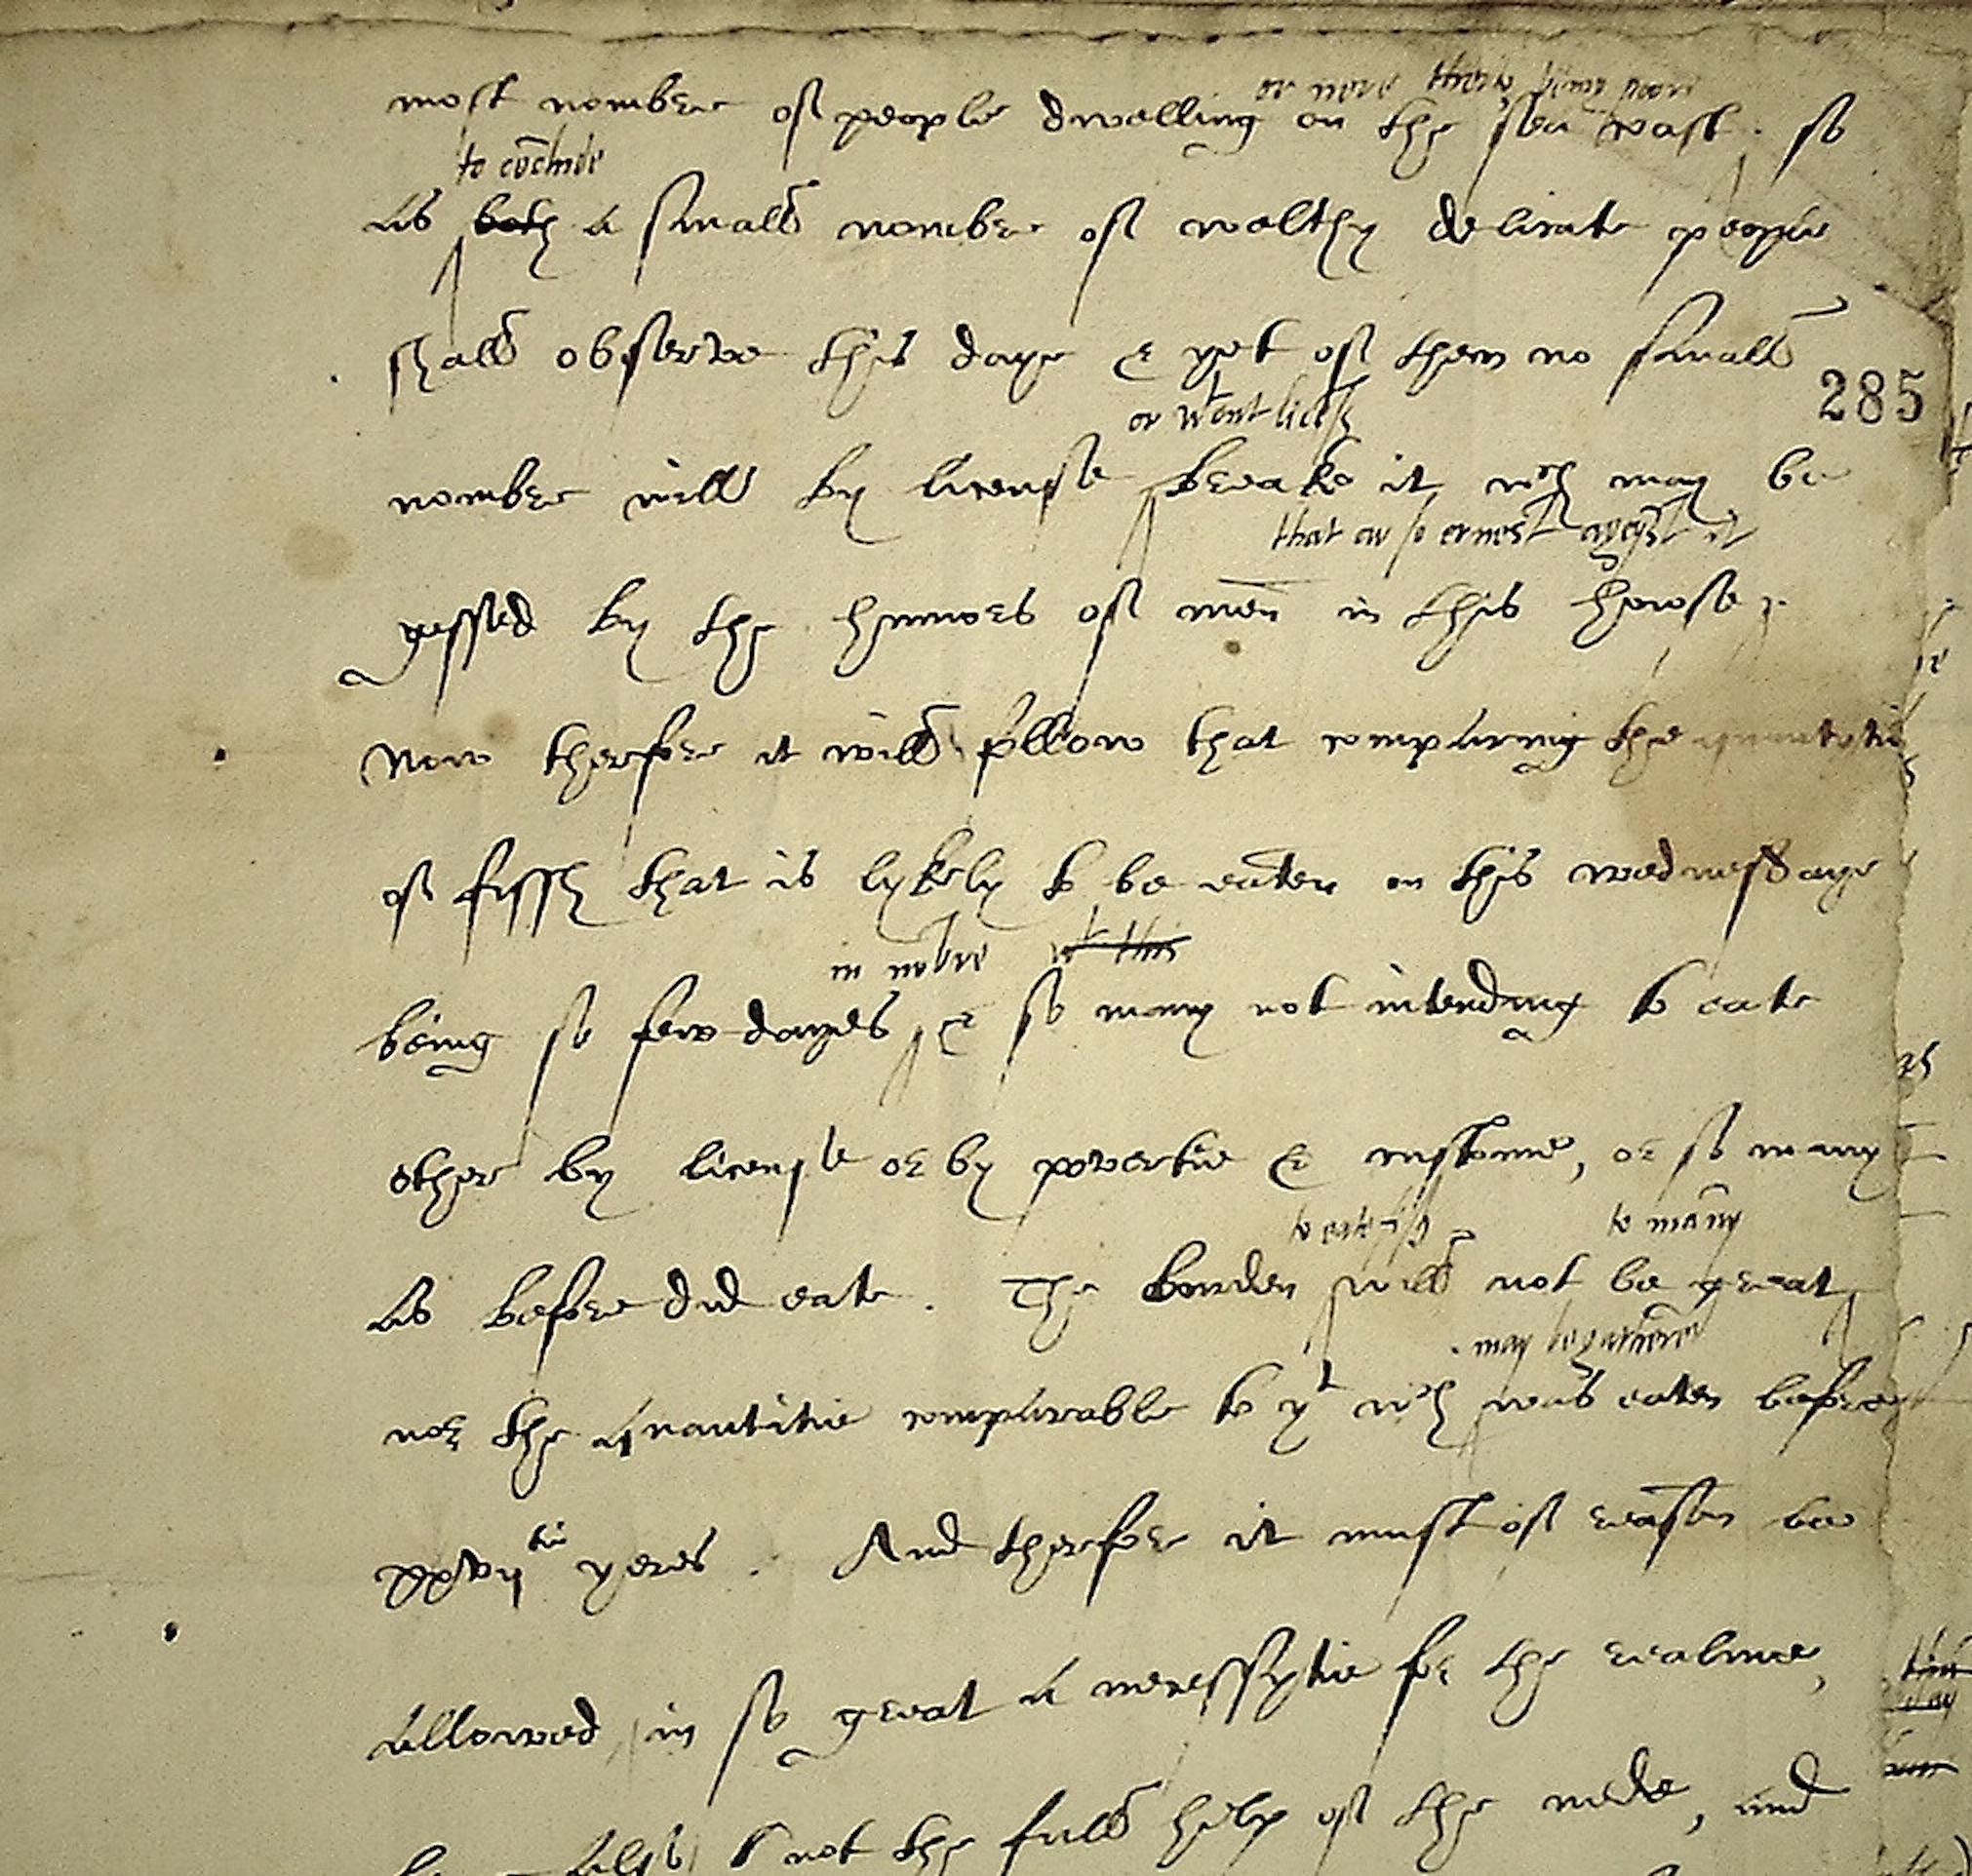 or nere therto being poore
most nombre of people dwelling on the sea coast. so
to conclude
as both a small nombre of welthy delicate people
shall observe this daye & yet of them no small
285
or wtout licēs
nombre will by license breake it, wch may be
that ar so ernest agēst it
gessed by the humors of men in this howse.
Now therfore it will follow that comparing the quantitie
of fissh that is lykely to be eaten on this wednesdaye
in nōbre wt this
being so few dayes, & so many not intending to eate
other by license or by povertie & custome, or so many
to eate fish to many
as before did eate. The burden will not be great
may be gathered
nor the quantitie comparable to yt wch was eaten before
xxvijtie yeres. And therfore it must of reason be
allowed, in so great a necessytie for the realme,
not the full help of the nede, and